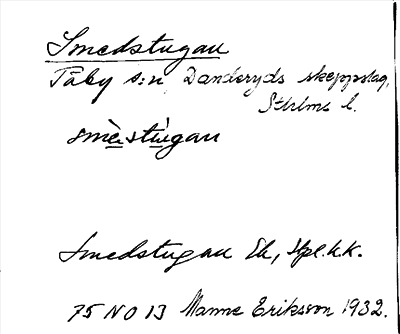 Smedstugan
Täby s:n, Danderyds skeppslag,
Sthlms l.
smè̱stù̱gan
Smedstugan Ek, Hpl.bk.
75 NO 13 Manne Eriksson 1932.